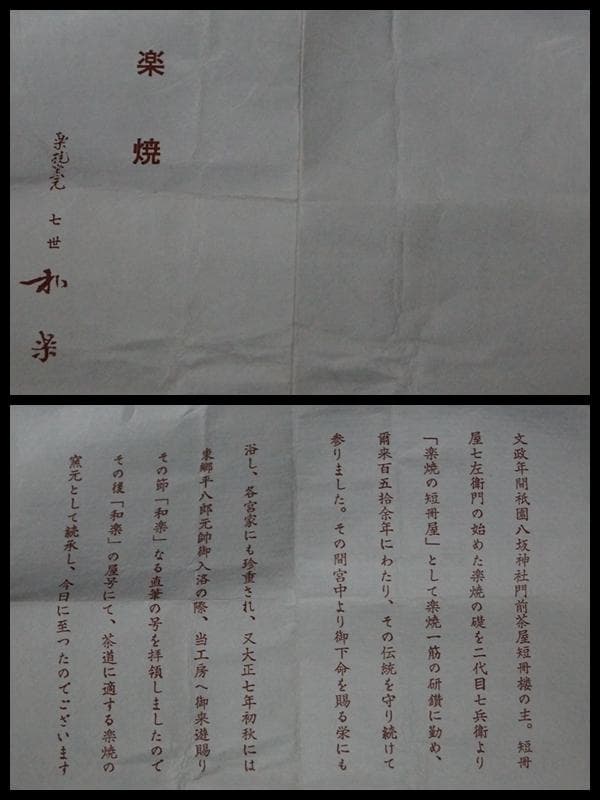 楽焼
楽焼窯元 七世 和楽
文政年間祇園八坂神社門前茶屋短冊楼の主。短冊
屋七左衛門の始めた楽焼の礎を二代目七兵衛より
「楽焼の短冊屋」として楽焼一筋の研鑽に勤め、
爾来百五拾余年にわたり、その伝統を守り続けて
参りました。その間宮中より御下命を賜る栄にも
浴し、各宮家にも珍重され、又大正七年初秋には
東郷平八郎元帥御入洛の際、当工房へ御来遊賜り
その節「和楽」なる直筆の号を拝領しましたので
その後「和楽」の屋号にて、茶道に適する楽焼の
窯元として続承し、今日に至つたのでございます